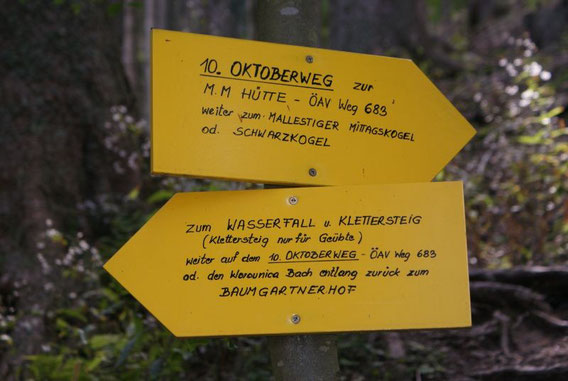 10. OKTOBERWEG zur
M.M HÜTTE - ÖAV Weg 683
weiter zum MALLESTIGER MITTAGSKOGEL
od. SCHWARZKOGEL
zum WASSERFALL u. KLETTERSTEIG
(Klettersteig nur für Geübte)
weiter auf dem 10. OKTOBERWEG - ÖAV Weg 683
od. den Worounica Bach entlang zurück zum
BAUMGARTNERHOF